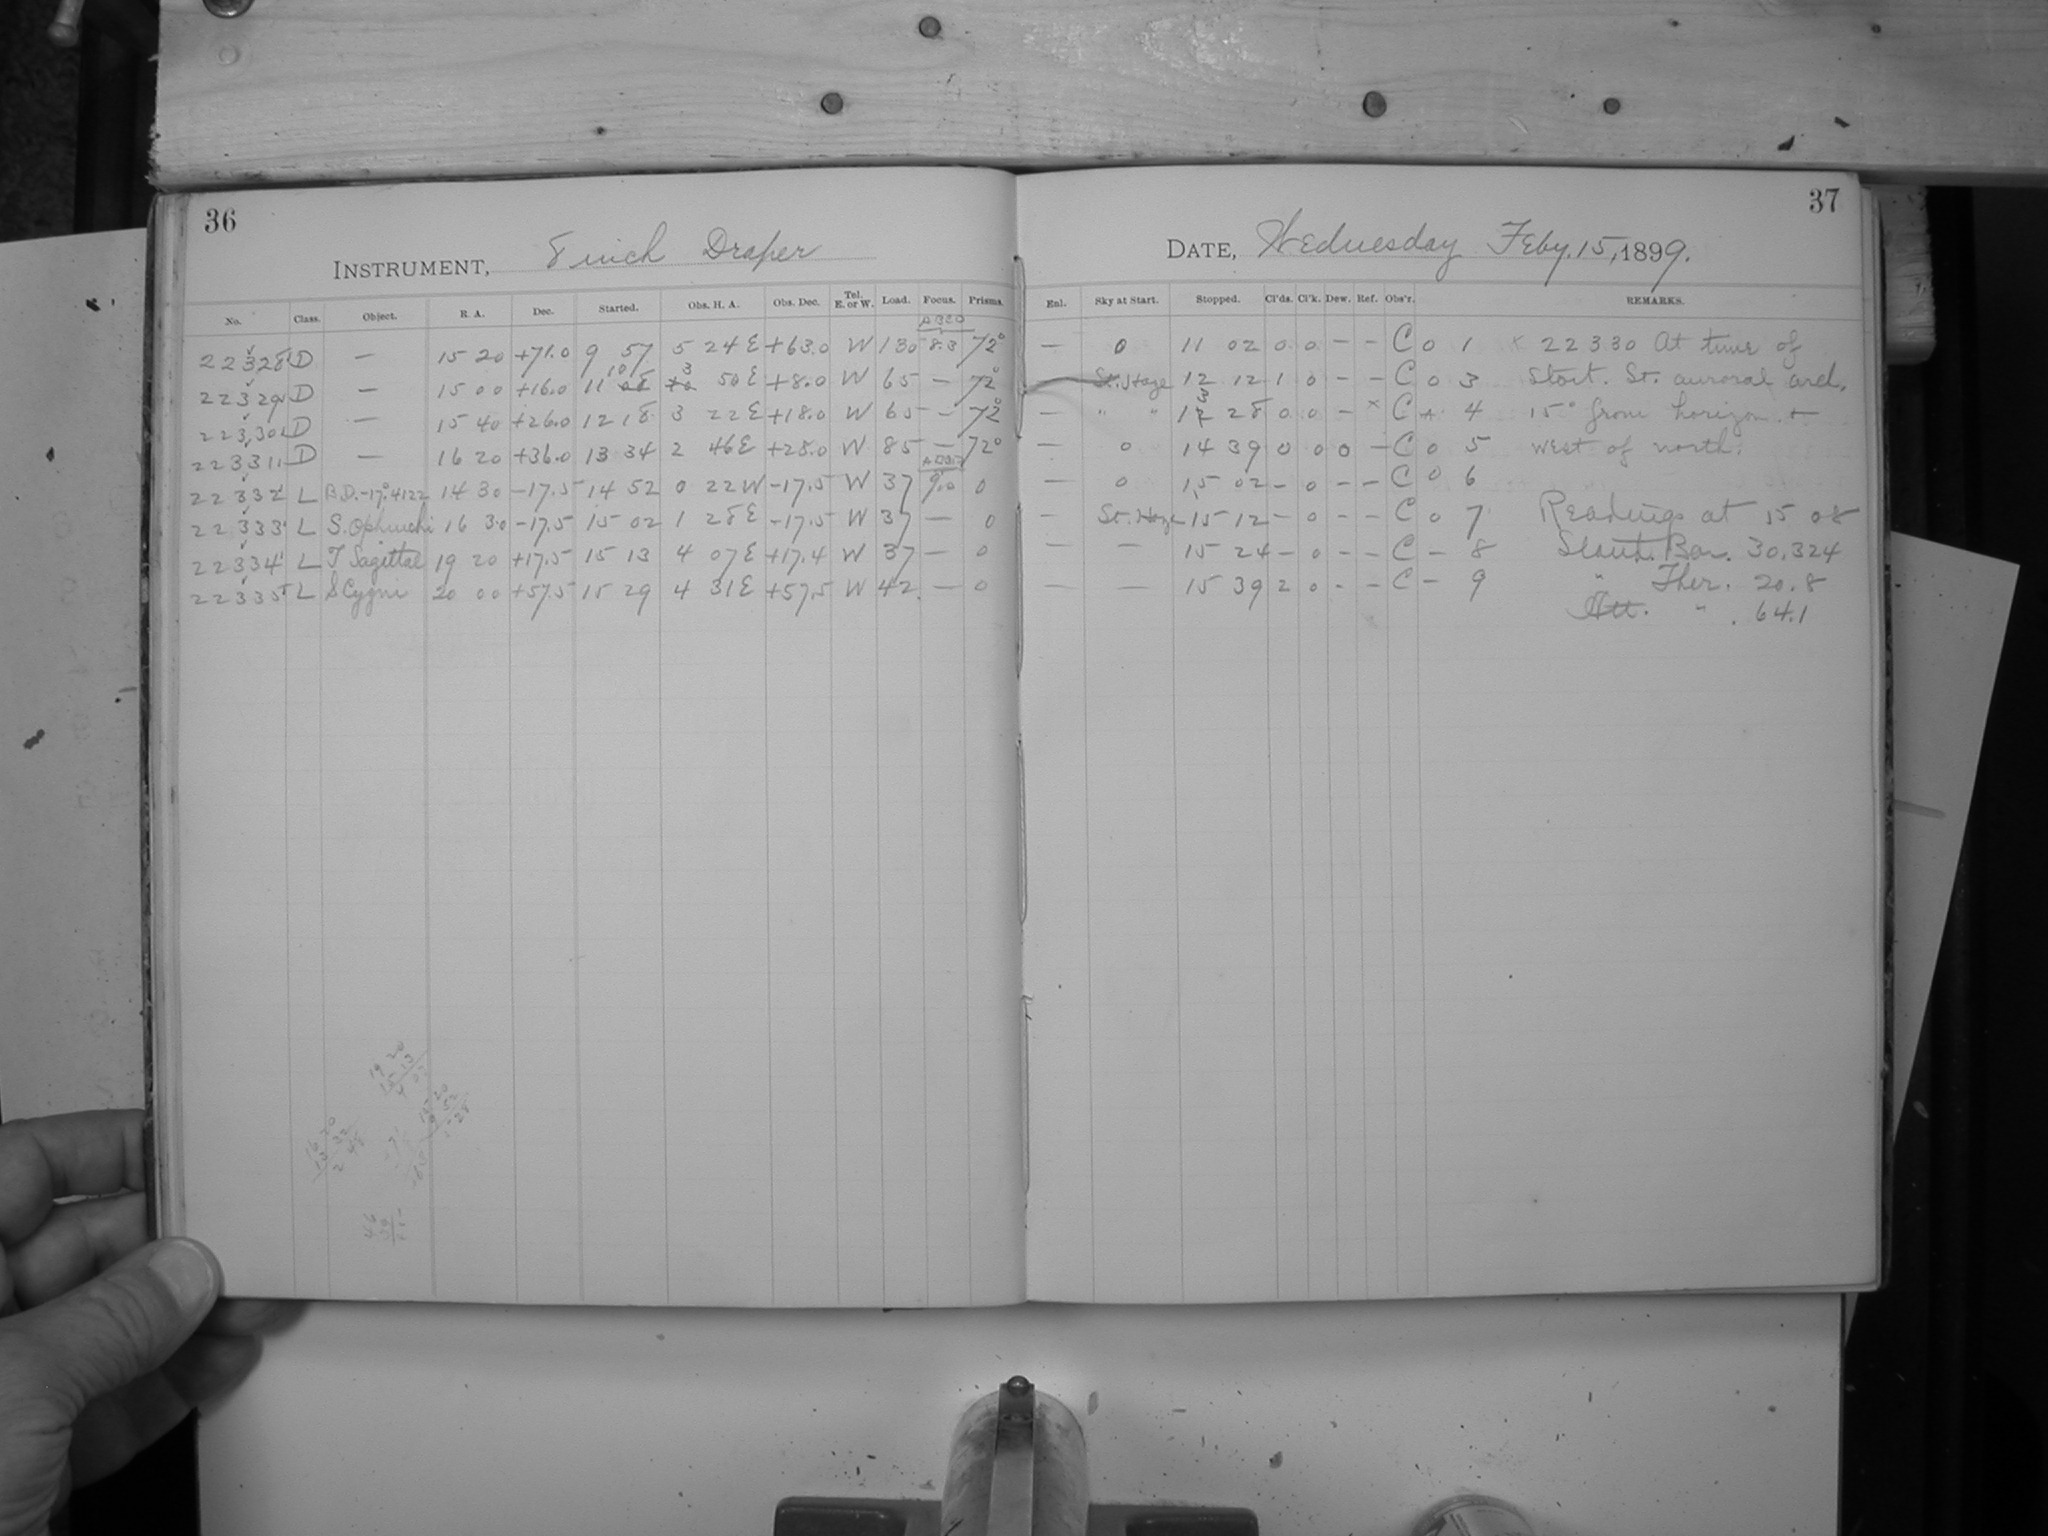 36
INSTRUMENT, 8 inch Draper
No. Class. Object. R. A. Dec. Started. Obs. H. A. Obs. Dec. Tel. E. or W. Load. Focus. Prisms.
22328 D — 15 20 +71.0 9 57 5 24 E +63.0 W 130 8.3 72°
22329 D — 15 00 +16.0 11 10 3 50 E +8.0 W 65 — 72°
22330 D — 15 40 +26.0 12 18 3 22 E +18.0 W 65 — 72°
22331 D — 16 20 +36.0 13 34 2 46 E +28.0 W 85 — 72°
22332 L B.D.-17°.4122 14 30 -17.5 14 52 0 22 W -17.5 W 37 9.0 0
22333 L S. Ophiuchi 16 30 -17.5 15 02 1 28 E -17.5 W 37 — 0
22334 L T Sagittae 19 20 +17.5 15 13 4 07 E +17.4 W 37 — 0
22335 L S Cygni 20 00 +57.5 15 29 4 31 E +57.5 W 42 — 0
37
DATE, Wednesday Feby. 15, 1899.
Enl. Sky at Start. Stopped. Cl'ds. Cl'k. Dew. Ref. Obs'r. REMARKS.
— 0 11 02 0 0 - - C 0 1 x 22330 At time of
St. Haze 12 12 1 0 - - C 0 3 start. St. auroral arch,
— " " 13 28 0 0 - x C A 4 15° from horizon +
— 0 14 39 0 0 0 - C 0 5 west of north.
— 0 15 02 - 0 - - C 0 6
— St. Haze 15 12 - 0 - - C 0 7 Readings at 15 08
— — 15 24 - 0 - - C - 8 Stand. Bar. 30.324
— — 15 39 2 0 - - C - 9 " Ther. 20.8
Att. " . 64.1